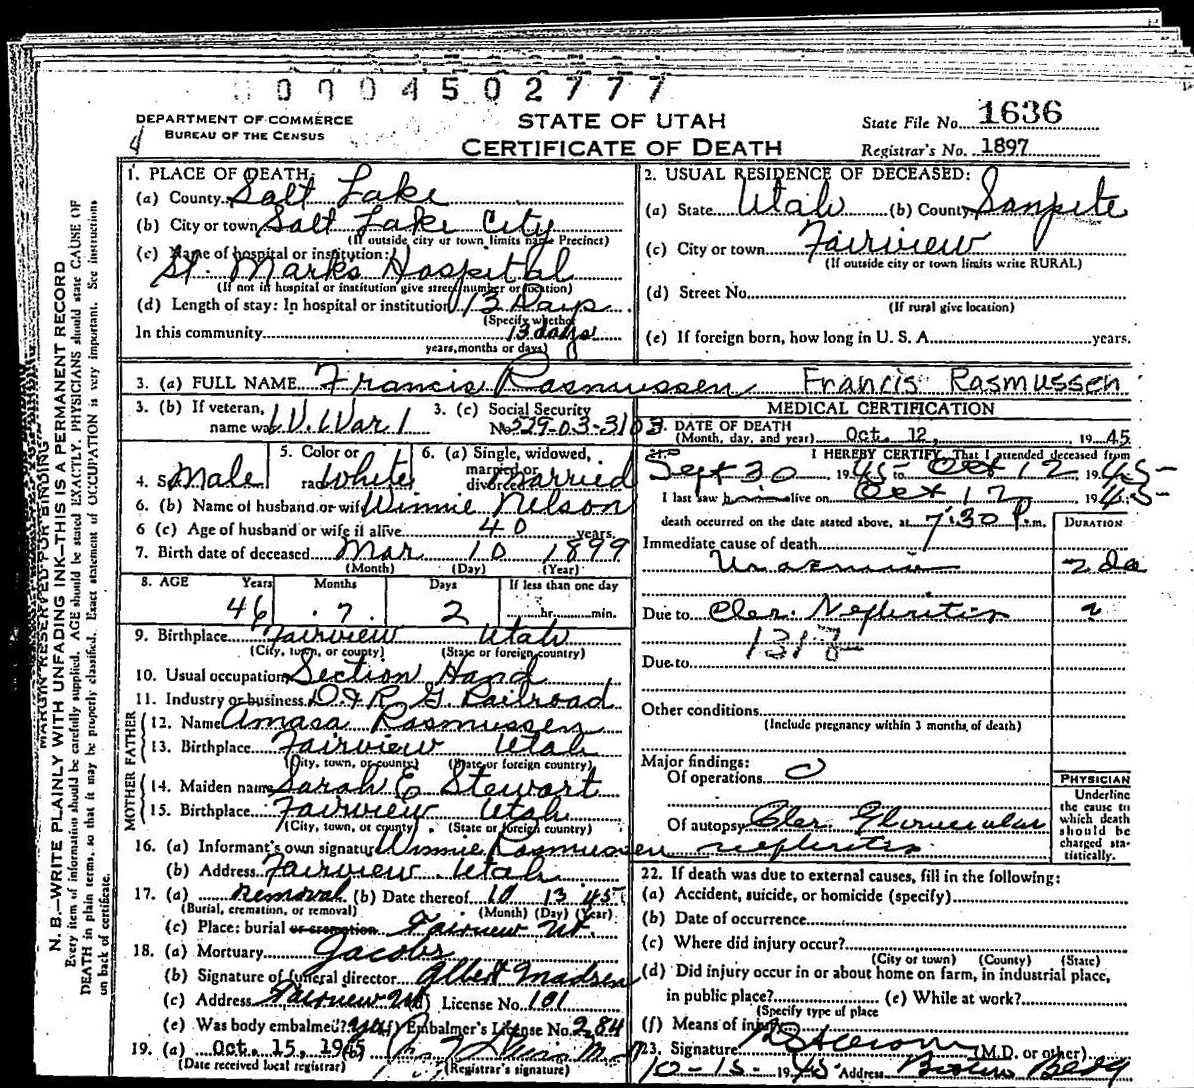 0004502777
DEPARTMENT OF COMMERCE
BUREAU OF THE CENSUS
4
STATE OF UTAH
CERTIFICATE OF DEATH
State File No. 1636
Registrar's No. 1897
MARGIN RESERVED FOR BINDING
N. B.—WRITE PLAINLY WITH UNFADING INK—THIS IS A PERMANENT RECORD
Every item of information should be carefully supplied. AGE should be stated EXACTLY. PHYSICIANS should state CAUSE OF
DEATH in plain terms, so that it may be properly classified. Exact statement of OCCUPATION is very important. See instructions
on back of certificate.
1. PLACE OF DEATH:
(a) County Salt Lake
(b) City or town Salt Lake City
(If outside city or town limits name Precinct)
(c) Name of hospital or institution:
St. Marks Hospital
(If not in hospital or institution give street number or location)
(d) Length of stay: In hospital or institution 13 Days
(Specify whether
In this community 13 days
years, months or days)
2. USUAL RESIDENCE OF DECEASED:
(a) State Utah (b) County Sanpete
(c) City or town Fairview
(If outside city or town limits write RURAL)
(d) Street No.
(If rural give location)
(e) If foreign born, how long in U. S. A. years.
3. (a) FULL NAME Francis Rasmussen Francis Rasmussen
3. (b) If veteran, name war W. War 1 3. (c) Social Security No. 529-03-3103
4. Sex Male 5. Color or race White 6. (a) Single, widowed, married or divorced Married
6. (b) Name of husband or wife Winnie Nelson
6 (c) Age of husband or wife if alive 40 years.
7. Birth date of deceased Mar 10 1899
(Month) (Day) (Year)
8. AGE Years Months Days If less than one day
46 7 2 hr. min.
9. Birthplace Fairview Utah
(City, town, or county) (State or foreign country)
10. Usual occupation Section Hand
11. Industry or business D. & R. G Railroad
FATHER
12. Name Amasa Rasmussen
13. Birthplace Fairview Utah
(City, town, or county) (State or foreign country)
MOTHER
14. Maiden name Sarah E Stewart
15. Birthplace Fairview Utah
(City, town, or county) (State or foreign country)
16. (a) Informant's own signature Winnie Rasmussen
(b) Address Fairview Utah
17. (a) Removal (b) Date thereof 10 13 45
(Burial, cremation, or removal) (Month) (Day) (Year)
(c) Place: burial or cremation Fairview Ut.
18. (a) Mortuary Jacobs
(b) Signature of funeral director Albert Madsen
(c) Address Fairview Ut (d) License No. 101
(e) Was body embalmed? yes (f) Embalmer's License No. 284
19. (a) Oct. 15, 1945 (b)
(Date received local registrar) (Registrar's signature)
MEDICAL CERTIFICATION
DATE OF DEATH
(Month, day, and year) Oct. 12, 1945
I HEREBY CERTIFY, That I attended deceased from
Sept 30 1945 to Oct 12, 1945
I last saw him alive on Oct 12 1945
death occurred on the date stated above, at 7:30 P. m.
DURATION
Immediate cause of death
Uraemia 2 da
Due to Nephritis ?
Due to
Other conditions
(Include pregnancy within 3 months of death)
Major findings:
Of operations 0
Of autopsy Glomerular
nephritis
PHYSICIAN
Underline
the cause to
which death
should be
charged sta-
tistically.
22. If death was due to external causes, fill in the following:
(a) Accident, suicide, or homicide (specify)
(b) Date of occurrence
(c) Where did injury occur?
(City or town) (County) (State)
(d) Did injury occur in or about home on farm, in industrial place,
in public place? (e) While at work?
(Specify type of place
(f) Means of injury
23. Signature (M.D. or other)
10-15-1945 Address Bldg